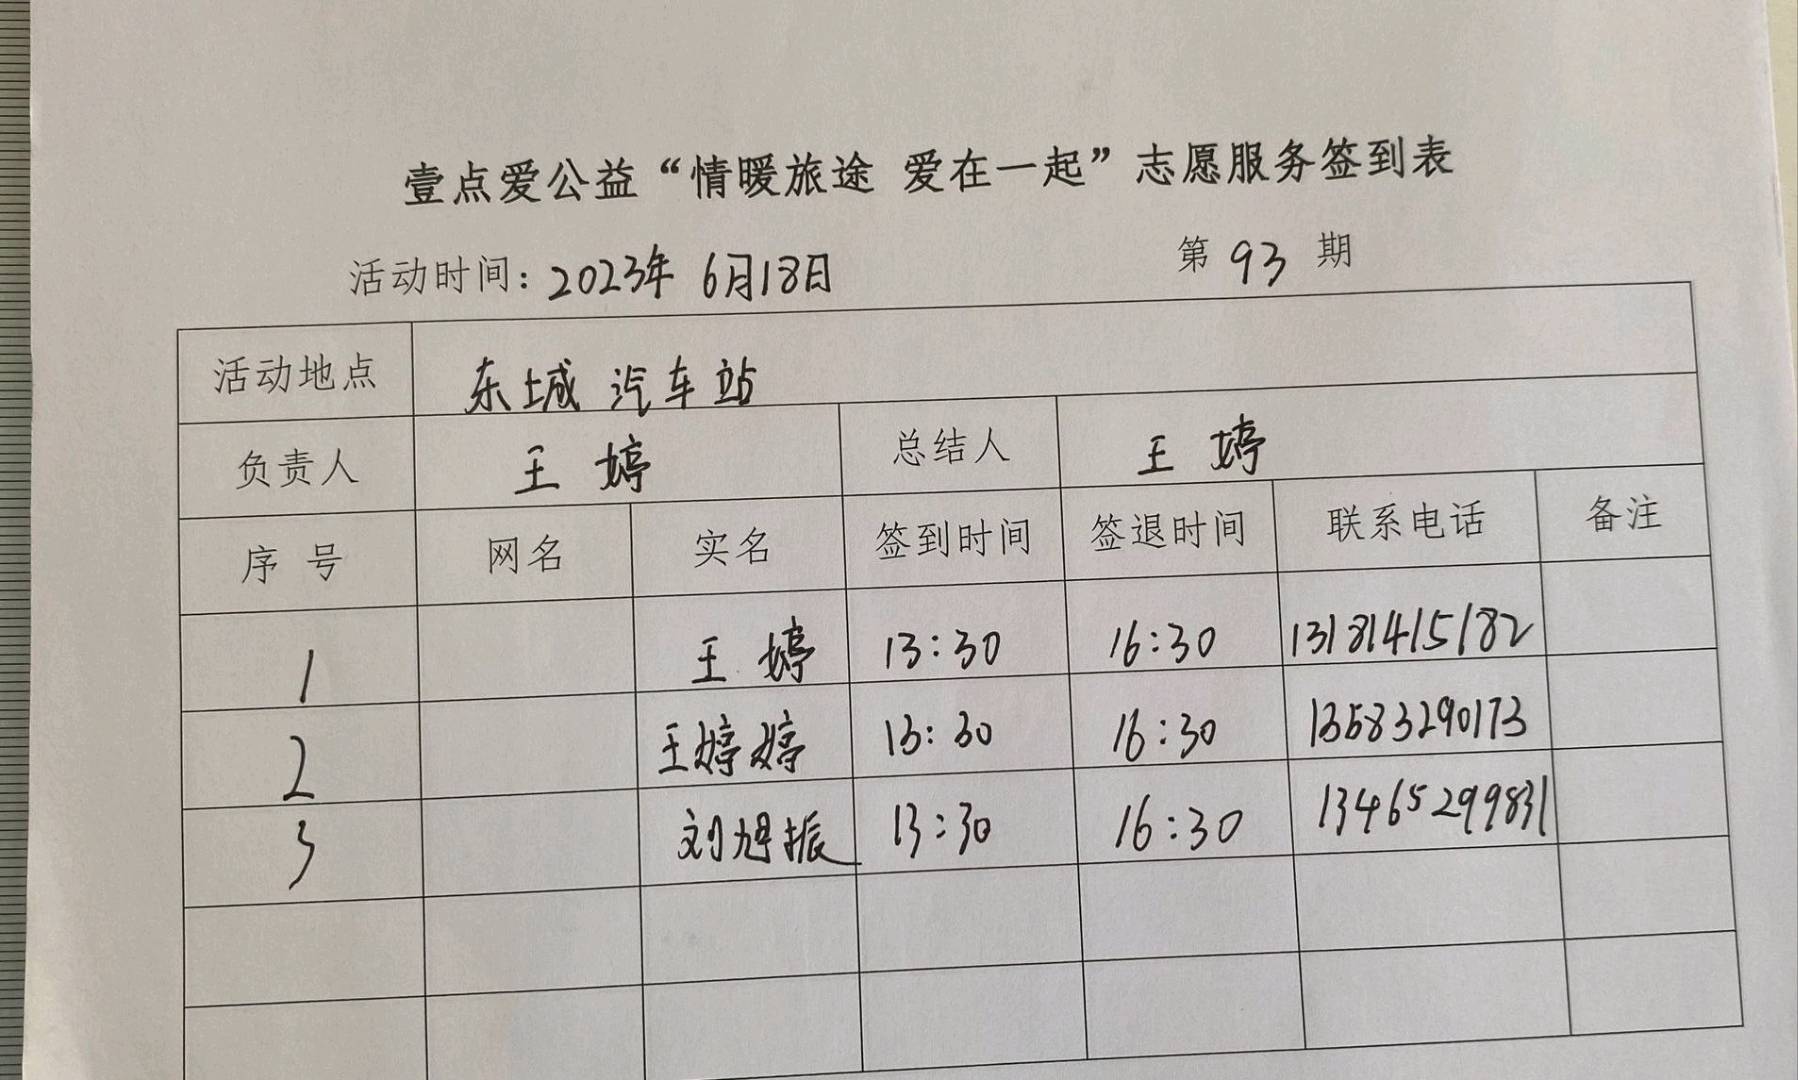 壹点爱公益“情暖旅途 爱在一起”志愿服务签到表
活动时间：2023年 6月18日 第 93 期
活动地点 东城 汽车站
负责人 王 婷 总结人 王 婷
序 号 网名 实名 签到时间 签退时间 联系电话 备注
1 王 婷 13:30 16:30 13181415182
2 王婷婷 13:30 16:30 13583290173
3 刘旭振 13:30 16:30 13465299831